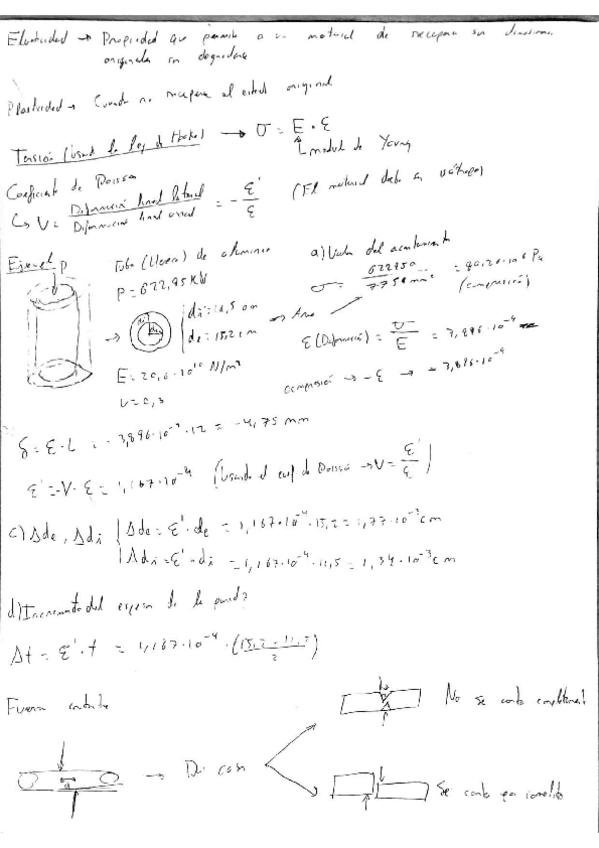 Elasticidad → Propiedad que permite a un material de recuperar sus dimensiones
originales sin degradarse
Plasticidad → Cuando no recupera el estado original
Tensión (usando la ley de Hooke) → σ = E · ε
modul de Young
Coeficiente de Poisson
↳ V = Deformación lineal lateral / Deformación lineal axial = - ε' / ε (El material debe ser isótropo)
Ejemplo P
Tubo (lleva) de aluminio
P = 622,95 KN
di = 11,5 cm
de = 15,2 cm → Area
E = 20,6·10¹⁰ N/m²
V = 0,3
a) Valor del acortamiento
σ = 622950 / 7750 mm² = 80,26·10⁶ Pa
(compresión)
ε (Deformación) = σ / E = 3,896·10⁻⁴
compresión → -ε → -3,896·10⁻⁴
δ = ε · L = -3,896·10⁻⁴ · 12 = -4,75 mm
ε' = -V · ε = 1,167·10⁻⁴ (Usando el coef de Poisson → V = ε' / ε)
c) Δde, Δdi
Δde = ε' · de = 1,167·10⁻⁴ · 15,2 = 1,77·10⁻³ cm
Δdi = ε' · di = 1,167·10⁻⁴ · 11,5 = 1,34·10⁻³ cm
d) Incremento del espesor de la pared?
Δt = ε' · t = 1,167·10⁻⁴ · (15,2 - 11,5 / 2)
Fuerza cortante
No se corta completament
→ Dos casos
Se corta por completo